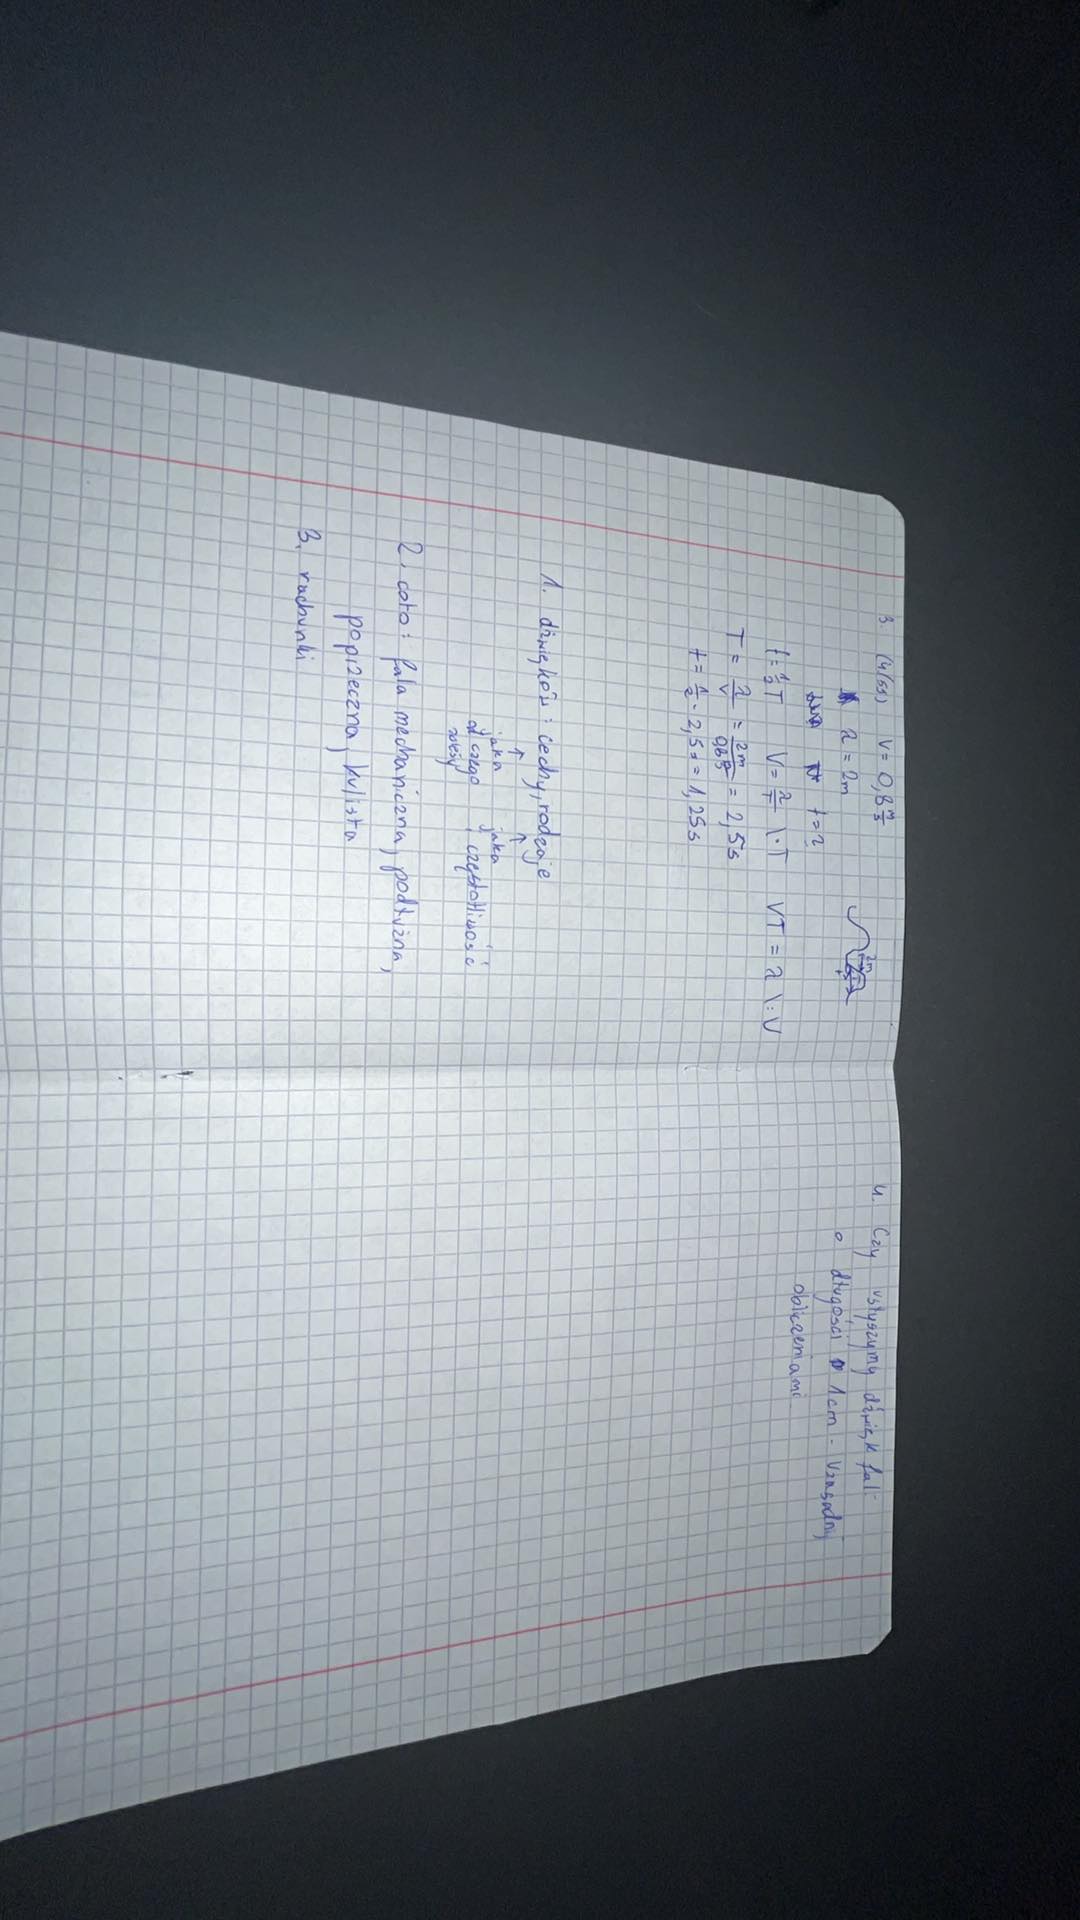 3. (4/55) V = 0,8 m/s
2m
λ = 2m
t = ?
t = 1/2 T V = λ/T \·T VT = λ \:V
T = λ/v = 2m/0,8 = 2,5s
t = 1/2 · 2,5s = 1,25s
1. dźwięków: cechy, rodzaje
↑ ↑
jaka jaka
od czego częstotliwość
zależy
2. co to: fala mechaniczna, podłużna,
poprzeczna, kulista
3. rachunki
4. Czy usłyszymy dźwięk fali
o długości 1cm - Uzasadnij
obliczeniami